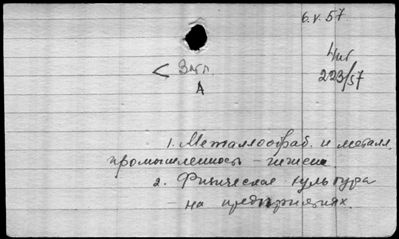 6.V.57
223/57
< Загл.
А
1. Металлообраб. и металл.
промышленность – гигиена
2. Физическая культура
на предприятиях.